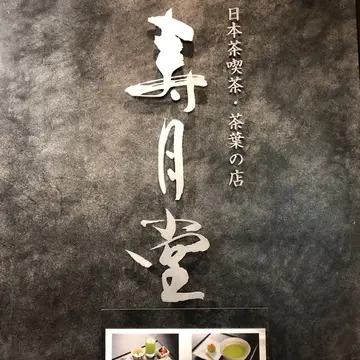 日本茶喫茶・茶葉の店
寿月堂